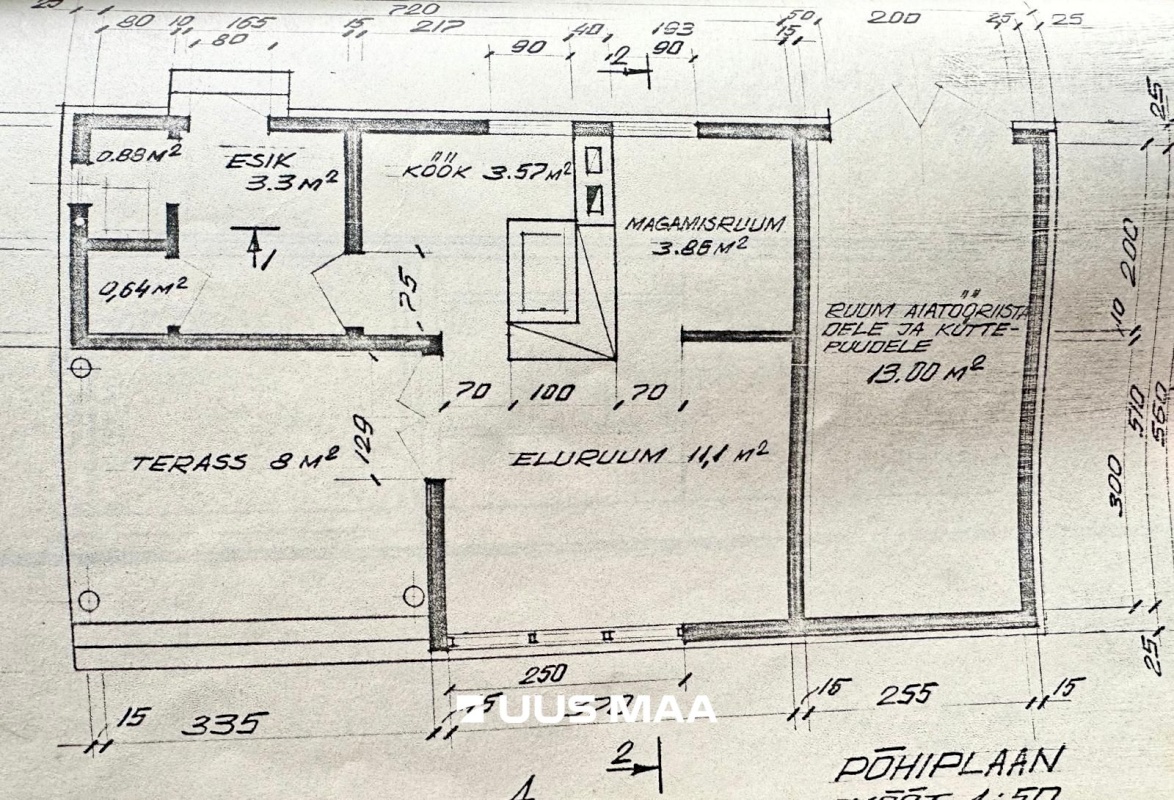 25 720
80 10 165 15 217 40 193 50 200 25 25
80 90 90 15
2
0.88 M²
ESIK
3.3 M²
KÖÖK 3.57 M²
MAGAMISRUUM
3.86 M²
1
0,64 M²
75
RUUM AIATÖÖRIISTA
DELE JA KÜTTE-
PUUDELE
13.00 M²
70 100 70
129
TERASS 8 M²
ELURUUM 11,1 M²
25
200
10
510
560
300
25
250
15 335 15 15 255 15
UUS MAA
2
PÕHIPLAAN
1:50